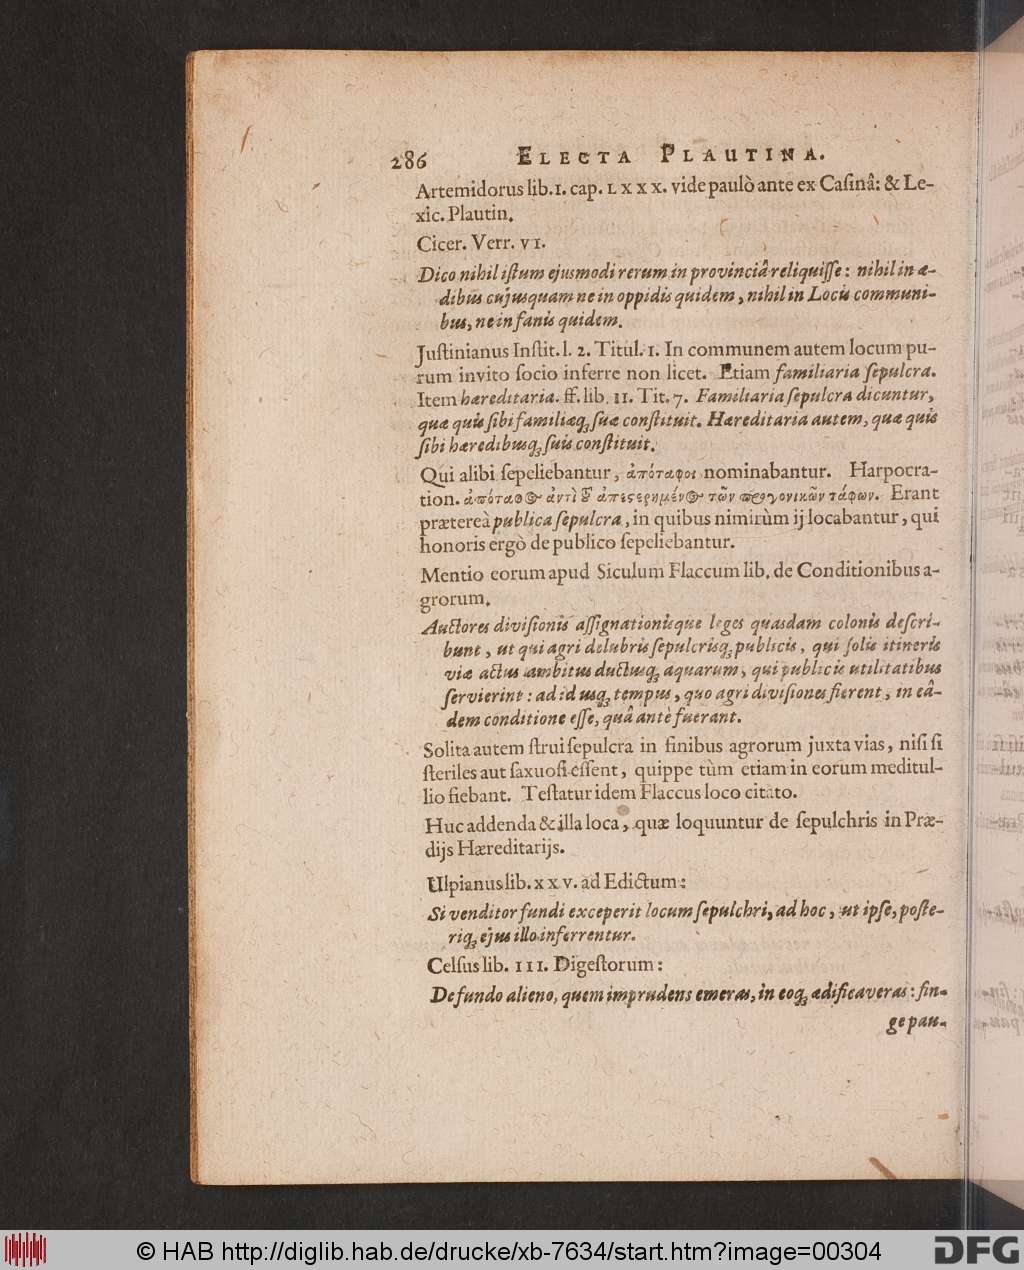 286 ELECTA PLAUTINA.
Artemidorus lib. 1. cap. LXXX. vide paulò ante ex Casinâ: & Le-
xic. Plautin.
Cicer. Verr. VI.
Dico nihil istum ejusmodi rerum in provinciâ reliquisse: nihil in æ-
dibus cujusquam ne in oppidis quidem, nihil in Locis communi-
bus, ne in fanis quidem.
Justinianus Instit. l. 2. Titul. 1. In communem autem locum pu-
rum invito socio inferre non licet. Etiam familiaria sepulcra.
Item hæreditaria. ff. lib. 11. Tit. 7. Familiaria sepulcra dicuntur,
quæ quis sibi familiæq; suæ constituit. Hæreditaria autem, quæ quis
sibi hæredibusq; suis constituit.
Qui alibi sepeliebantur, ἀπόταφοι nominabantur. Harpocra-
tion. ἀπόταφος ἀντὶ τοῦ ἀπεστερημένος τῶν προγονικῶν τάφων. Erant
prætereà publica sepulcra, in quibus nimirùm ij locabantur, qui
honoris ergò de publico sepeliebantur.
Mentio eorum apud Siculum Flaccum lib. de Conditionibus a-
grorum.
Auctores divisionis assignationisque leges quasdam colonis descri-
bunt, ut qui agri delubris sepulcrisq; publicis, qui solis itineris
viæ actus ambitus ductusq; aquarum, qui publicis utilitatibus
servierint: ad id usq; tempus, quo agri divisiones fierent, in eâ-
dem conditione esse, quâ antè fuerant.
Solita autem strui sepulcra in finibus agrorum juxta vias, nisi si
steriles aut saxuosi essent, quippe tùm etiam in eorum meditul-
lio fiebant. Testatur idem Flaccus loco citato.
Huc addenda & illa loca, quæ loquuntur de sepulchris in Præ-
dijs Hæreditarijs.
Ulpianus lib. XXV. ad Edictum:
Si venditor fundi exceperit locum sepulchri, ad hoc, ut ipse, poste-
riq; ejus illo inferrentur.
Celsus lib. III. Digestorum:
De fundo alieno, quem imprudens emeras, in eoq; ædificaveras: fin-
ge pau-
© HAB http://diglib.hab.de/drucke/xb-7634/start.htm?image=00304
DFG